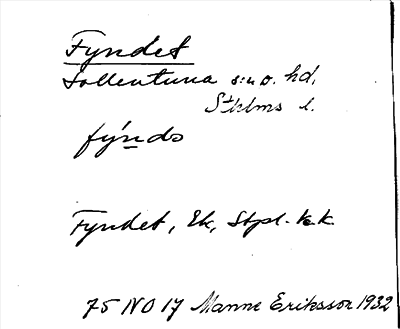 Fyndet
Sollentuna s:n o. hd,
Sthlms l.
fýndə
Fyndet, Ek, Stpl. kk.
75 NO 17 Manne Eriksson 1932